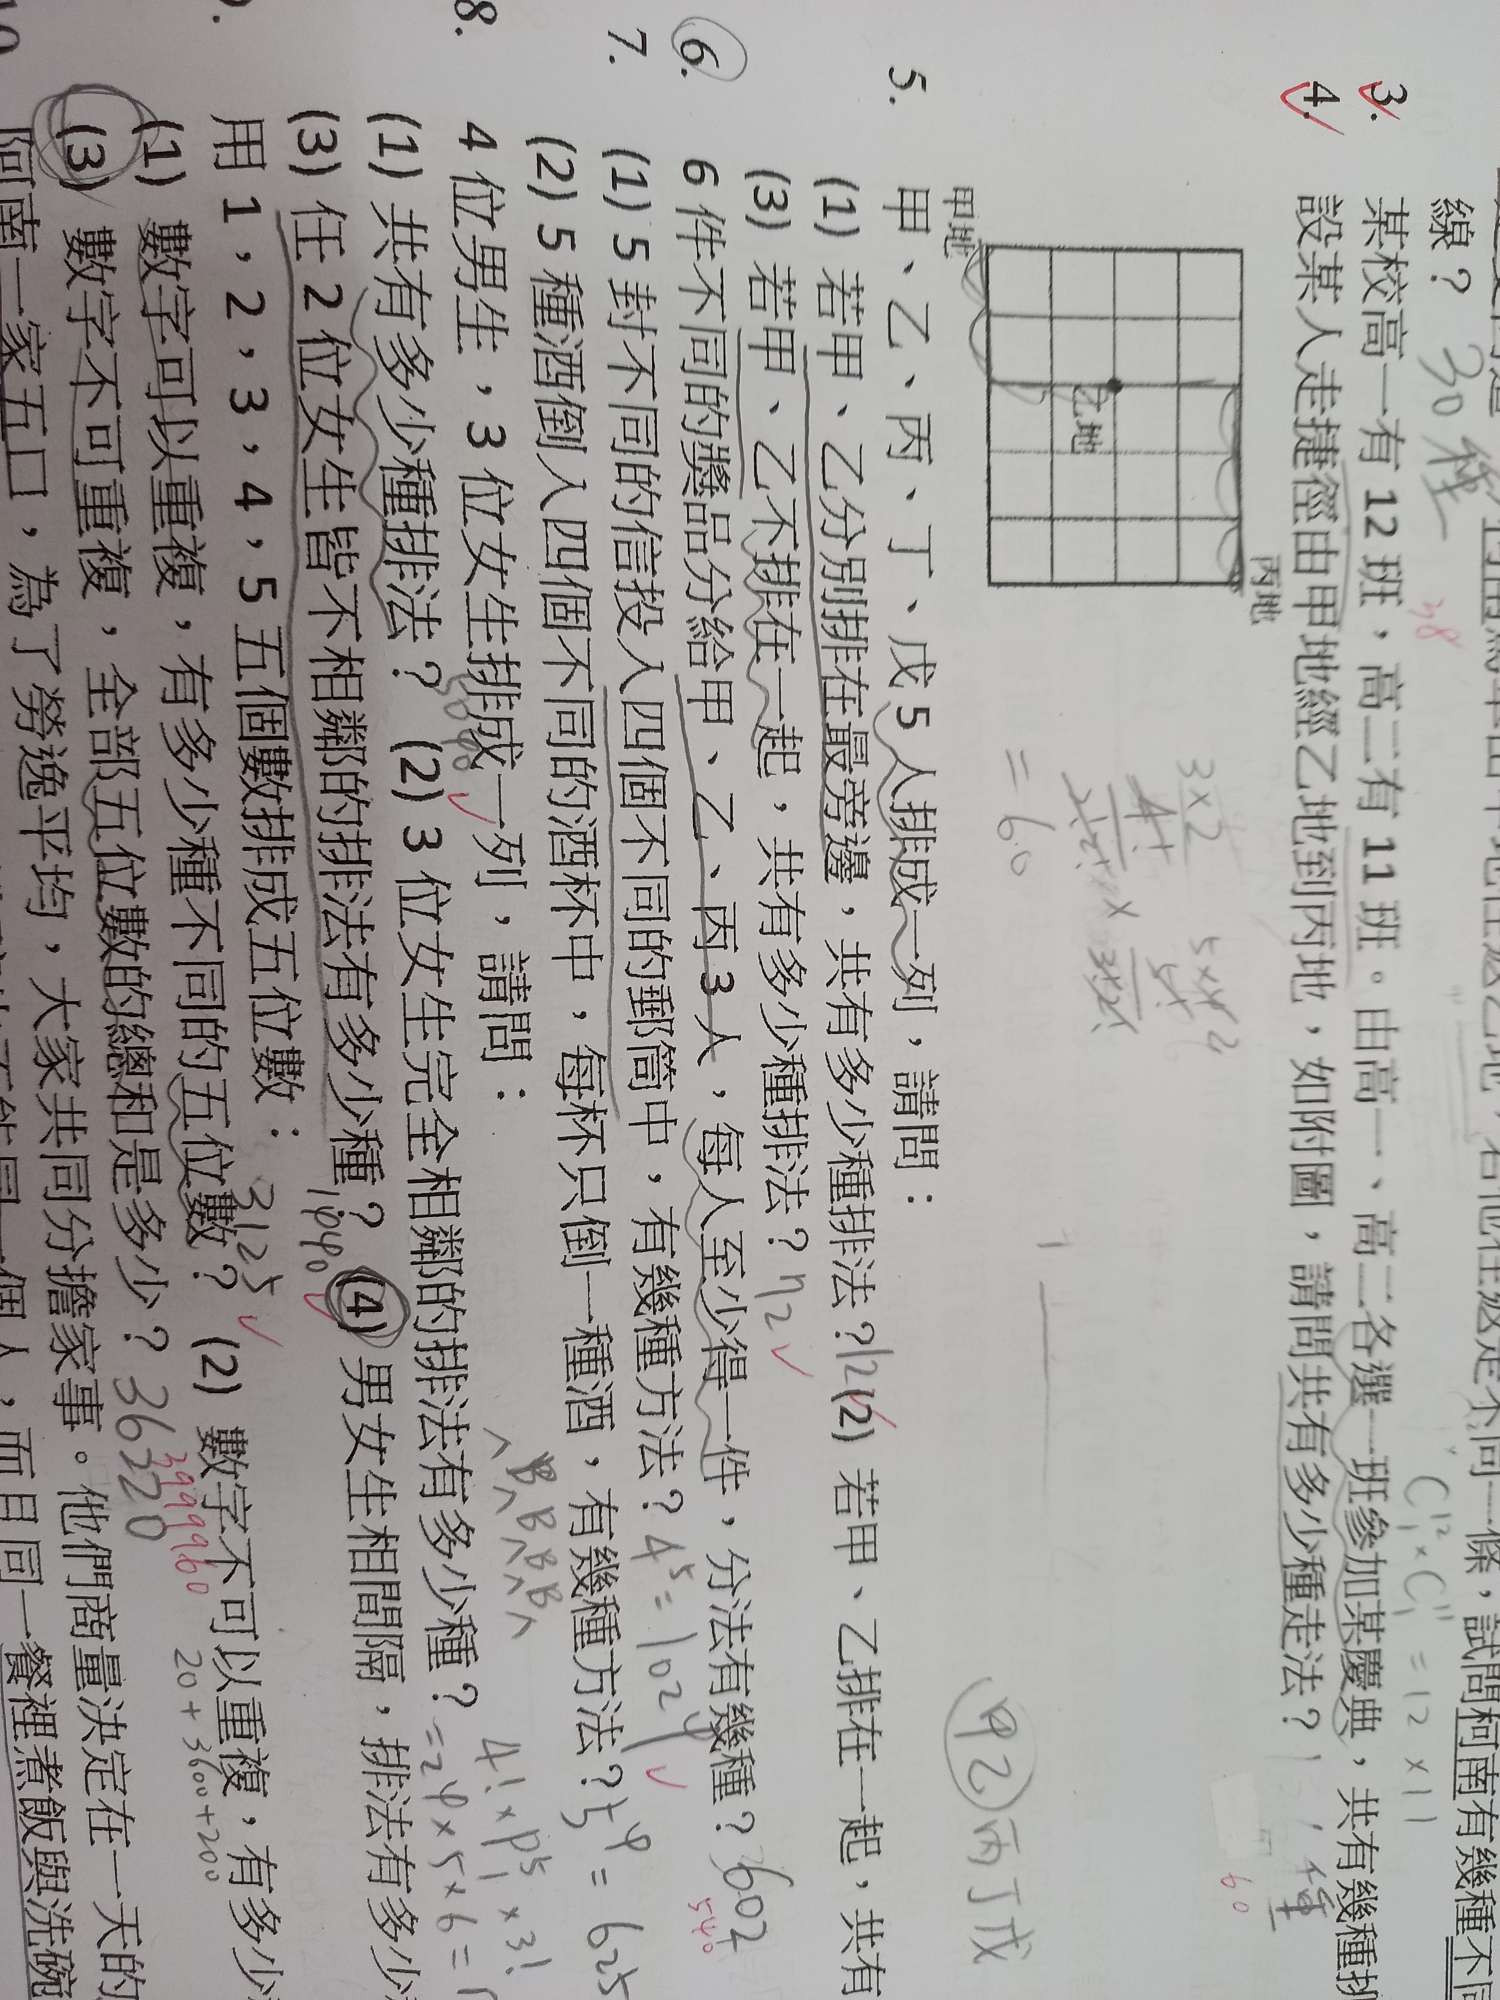 線？ 30種 38
3. 某校高一有 12 班，高二有 11 班。由高一、高二各選一班參加某慶典，共有幾種
C¹²₁ × C¹¹₁ = 12 × 11
4. 設某人走捷徑由甲地經乙地到丙地，如附圖，請問共有多少種走法？
60
丙地
乙地
甲地
= 60
甲乙 丙丁戊
5. 甲、乙、丙、丁、戊 5 人排成一列，請問：
(1) 若甲、乙分別排在最旁邊，共有多少種排法？12 (2) 若甲、乙排在一起，共有
(3) 若甲、乙不排在一起，共有多少種排法？72
6. 6 件不同的獎品分給甲、乙、丙 3 人，每人至少得一件，分法有幾種？602
540
7. (1) 5 封不同的信投入四個不同的郵筒中，有幾種方法？4⁵ = 1024
(2) 5 種酒倒入四個不同的酒杯中，每杯只倒一種酒，有幾種方法？5⁴ = 625
8. 4 位男生，3 位女生排成一列，請問：
^B^B^B^B^
4! × P⁵₁ × 3!
(1) 共有多少種排法？5040 (2) 3 位女生完全相鄰的排法有多少種？= 24 × 5 × 6 =
(3) 任 2 位女生皆不相鄰的排法有多少種？1440 (4) 男女生相間隔，排法有多少
用 1，2，3，4，5 五個數排成五位數：
(1) 數字可以重複，有多少種不同的五位數？3125 (2) 數字不可以重複，有多少
(3) 數字不可重複，全部五位數的總和是多少？36320
3999960
20 + 3600 + 200
阿南一家五口，為了勞逸平均，大家共同分擔家事。他們商量決定在一天的
餐裡煮飯與洗碗